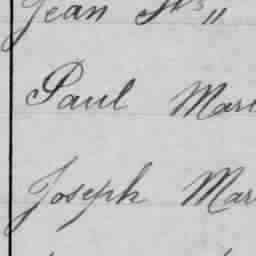 Jean Jh
Paul Mari
Joseph Mar